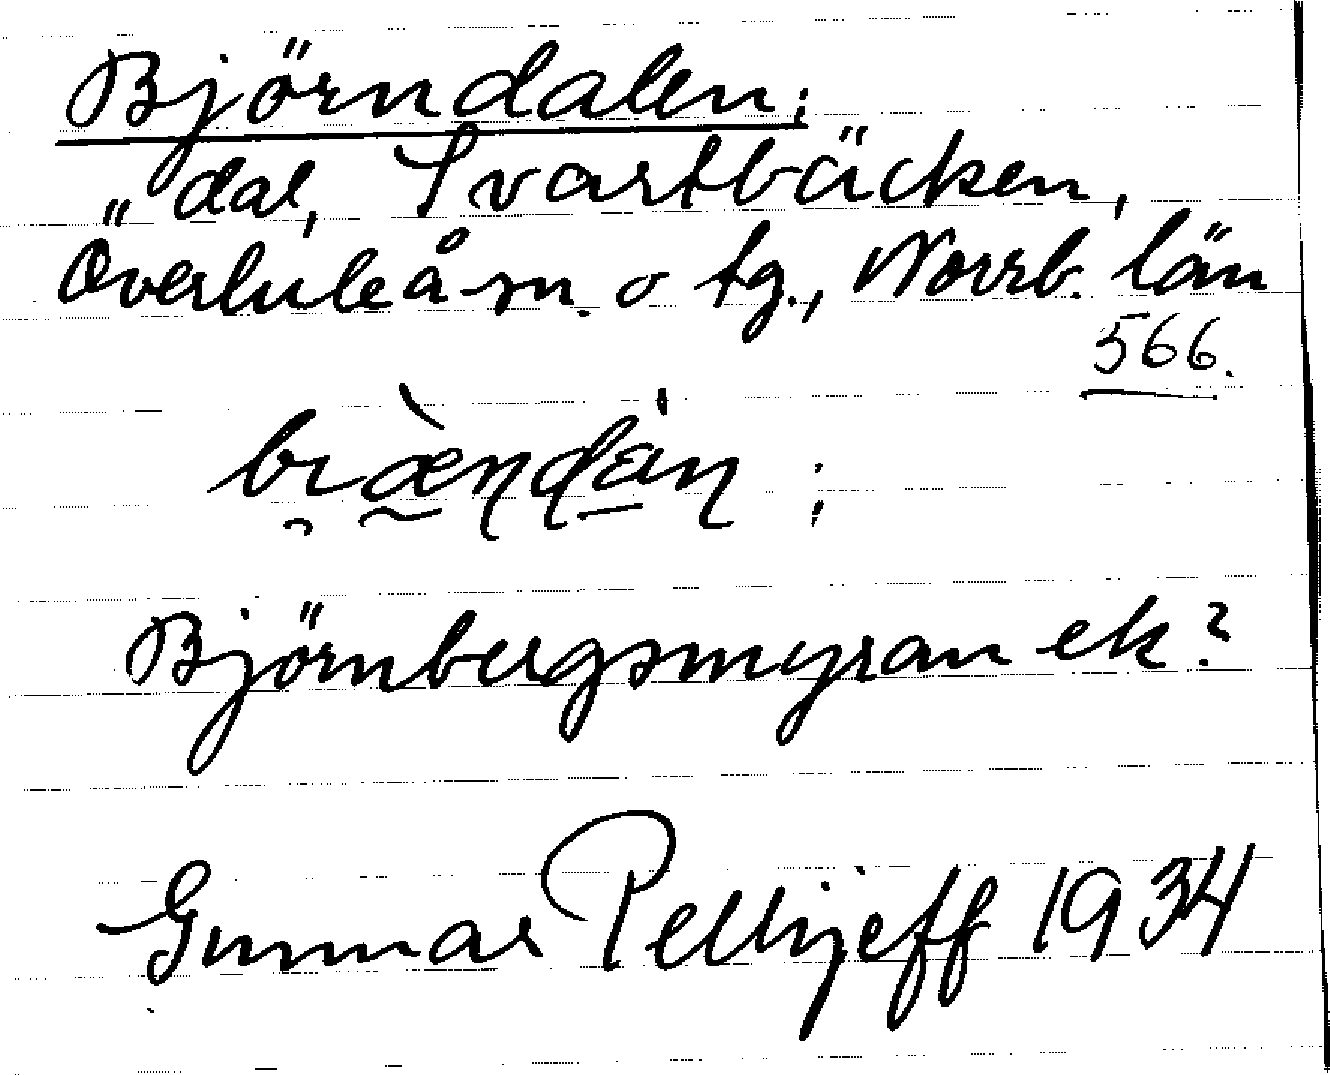 Björndalen;
„ dal, Svartbäcken,
Överluleå sn. o tg., Norrb. län
566.
Björnbergsmyran ek?
Gunnar Pellijeff 1934